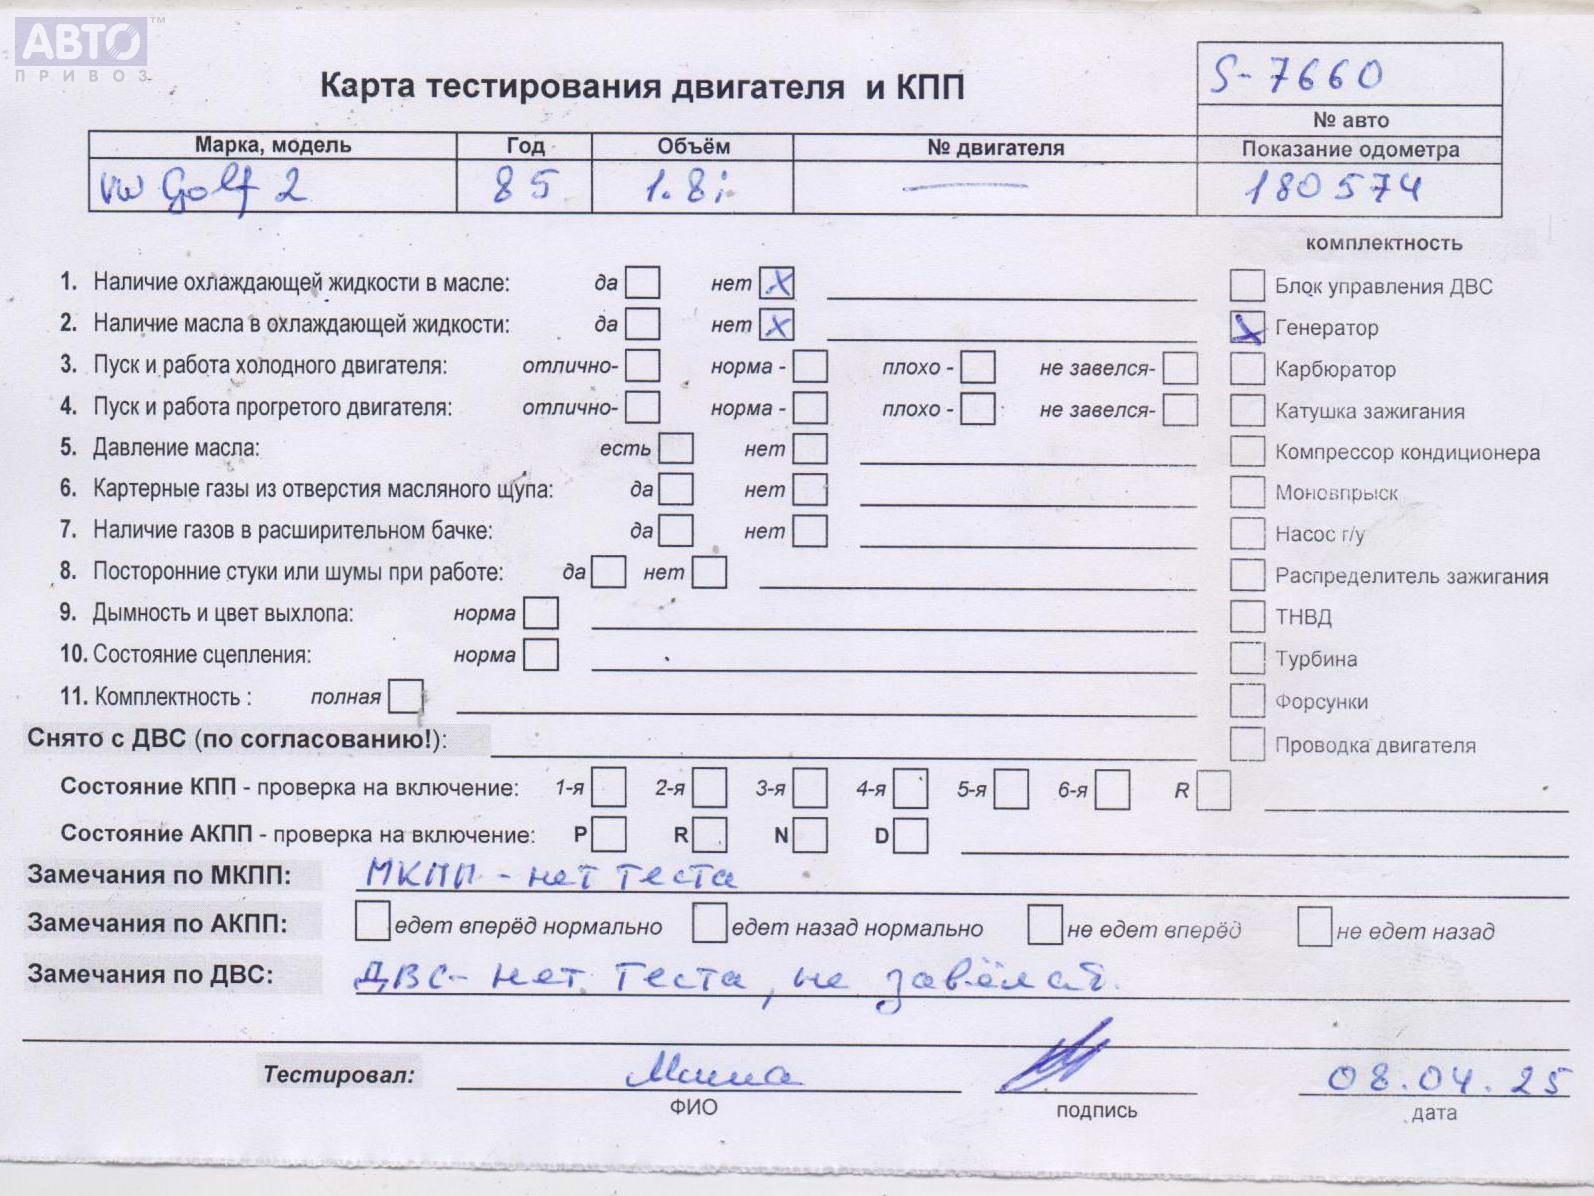 АВТО™
ПРИВОЗ
S-7660
Карта тестирования двигателя и КПП
№ авто
Марка, модель Год Объём № двигателя Показание одометра
VW Golf 2 85 1.8i — 180574
комплектность
1. Наличие охлаждающей жидкости в масле: да нет X Блок управления ДВС
2. Наличие масла в охлаждающей жидкости: да нет X X Генератор
3. Пуск и работа холодного двигателя: отлично- норма - плохо - не завелся- Карбюратор
4. Пуск и работа прогретого двигателя: отлично- норма - плохо - не завелся- Катушка зажигания
5. Давление масла: есть нет Компрессор кондиционера
6. Картерные газы из отверстия масляного щупа: да нет Моновпрыск
7. Наличие газов в расширительном бачке: да нет Насос г/у
8. Посторонние стуки или шумы при работе: да нет Распределитель зажигания
9. Дымность и цвет выхлопа: норма ТНВД
10. Состояние сцепления: норма Турбина
11. Комплектность : полная Форсунки
Снято с ДВС (по согласованию!): Проводка двигателя
Состояние КПП - проверка на включение: 1-я 2-я 3-я 4-я 5-я 6-я R
Состояние АКПП - проверка на включение: P R N D
Замечания по МКПП: МКПП - нет теста
Замечания по АКПП: едет вперёд нормально едет назад нормально не едет вперёд не едет назад
Замечания по ДВС: ДВС- нет теста, не завёлся.
Тестировал: 08.04.25
ФИО подпись дата